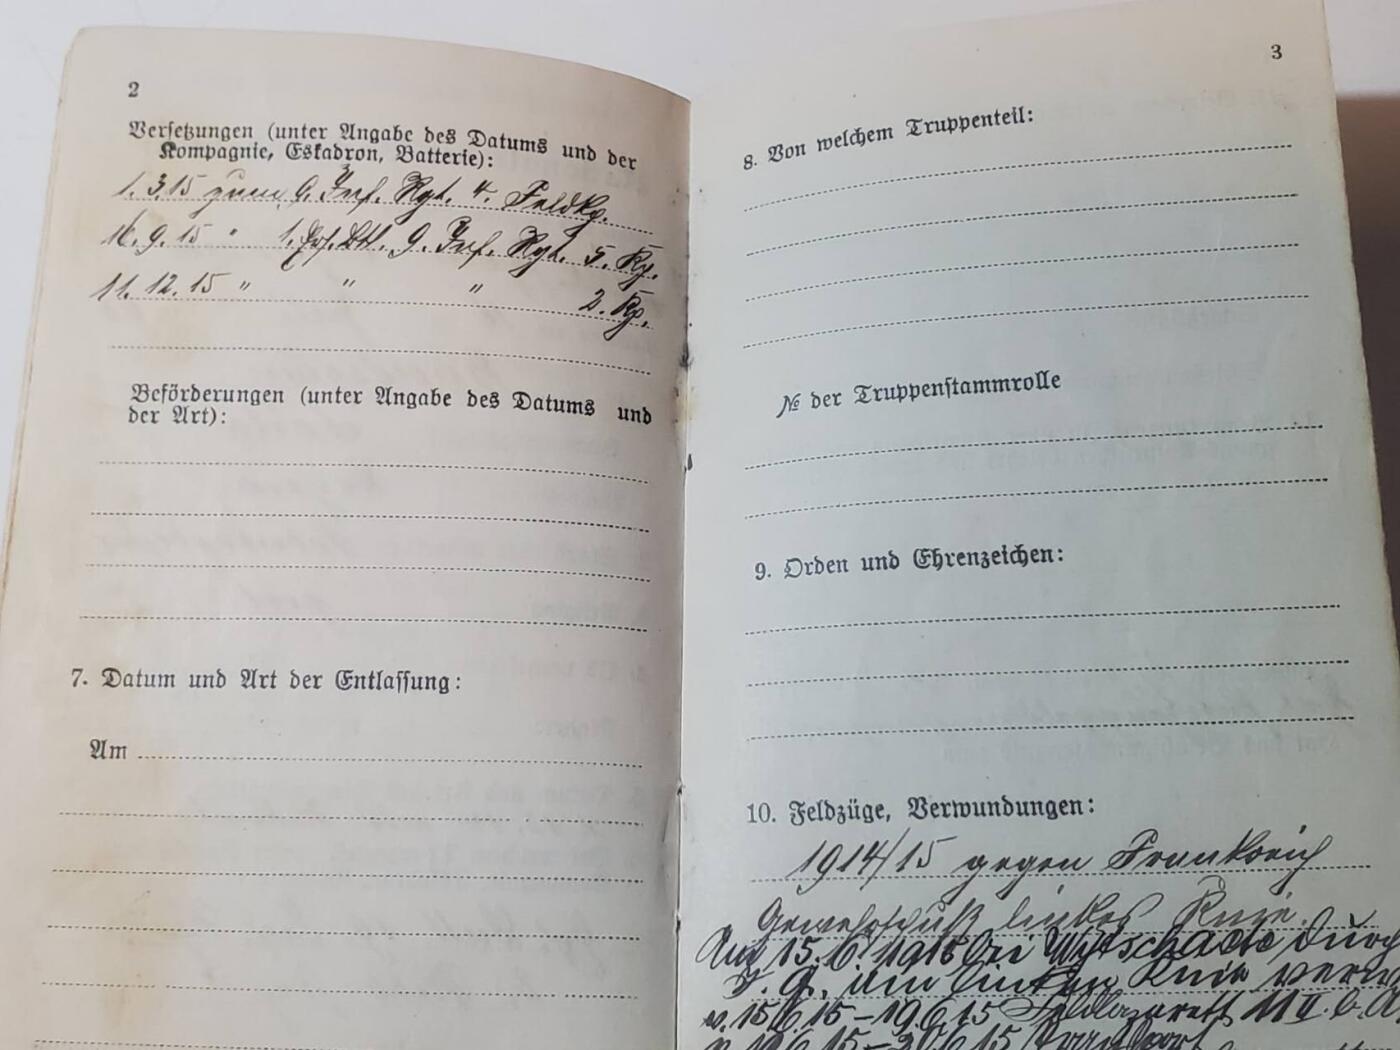 2
Versetzungen (unter Angabe des Datums und der
Kompagnie, Eskadron, Batterie):
1. 3. 15 zum 9. Inf. Rgt. 4. Feldkp.
16. 9. 15 " 1. Ers. Btl. 9. Inf. Rgt. 5. Kp.
11. 12. 15 " " " 2. Kp.
Beförderungen (unter Angabe des Datums und
der Art):
7. Datum und Art der Entlassung:
Am
3
8. Von welchem Truppenteil:
№ der Truppenstammrolle
9. Orden und Ehrenzeichen:
10. Feldzüge, Verwundungen:
1914/15 gegen Frankreich
Gewehrschuß linkes Knie.
Am 15. 6. 1915 bei Wytschaete durch
I. G. am linken Knie
v. 15.6.15 – 19.6.15 Feldlazarett